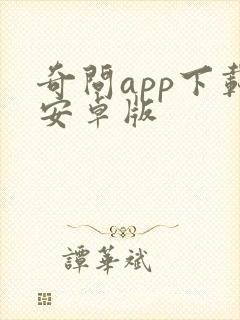 奇問app下載
安卓版
譚華斌